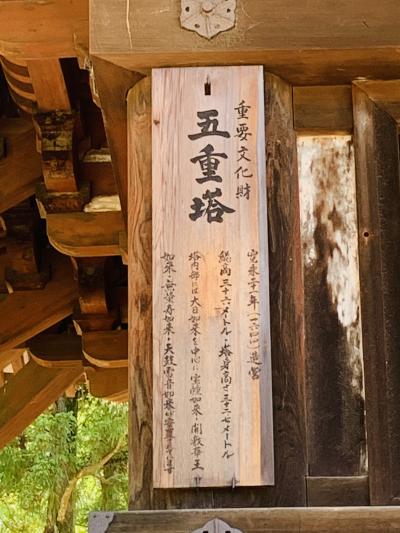 重要文化財
五重塔
寛永二十一年(一六四四)造営
総高三十六メートル・塔身高さ三十二・七メートル
塔内部には大日如来を中心に宝幢如来・開敷華王
如来・無量寿如来・天鼓雷音如来が安置されています